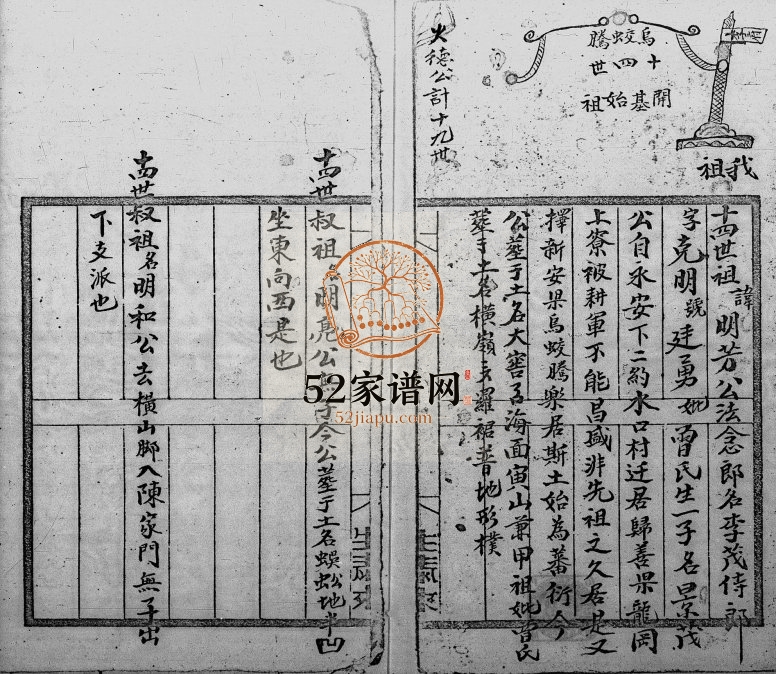 烏蛟騰
十四世
開基始祖
火德公計十九世
我祖
十四世祖諱明芳公法念郎名李茂侍郎
字克明號廷勇妣曾氏生一子名景茂
公自永安下二約水口村迁居歸善県龍岡
上寮被耕軍不能昌盛非先祖之久居是又
擇新安県烏蛟騰樂居斯土始為蕃衍今
公塟于土名大窖子海面寅山兼甲祖妣曾氏
塟于土名橫嶺亥羅裙普地形樸
十四世叔祖名明亮公無子今公塟于土名蜈蚣地半凹
坐東向西是也
十四世叔祖名明和公去橫山脚入陳家門無子出
下支派也
52家谱网
52jiapu.com